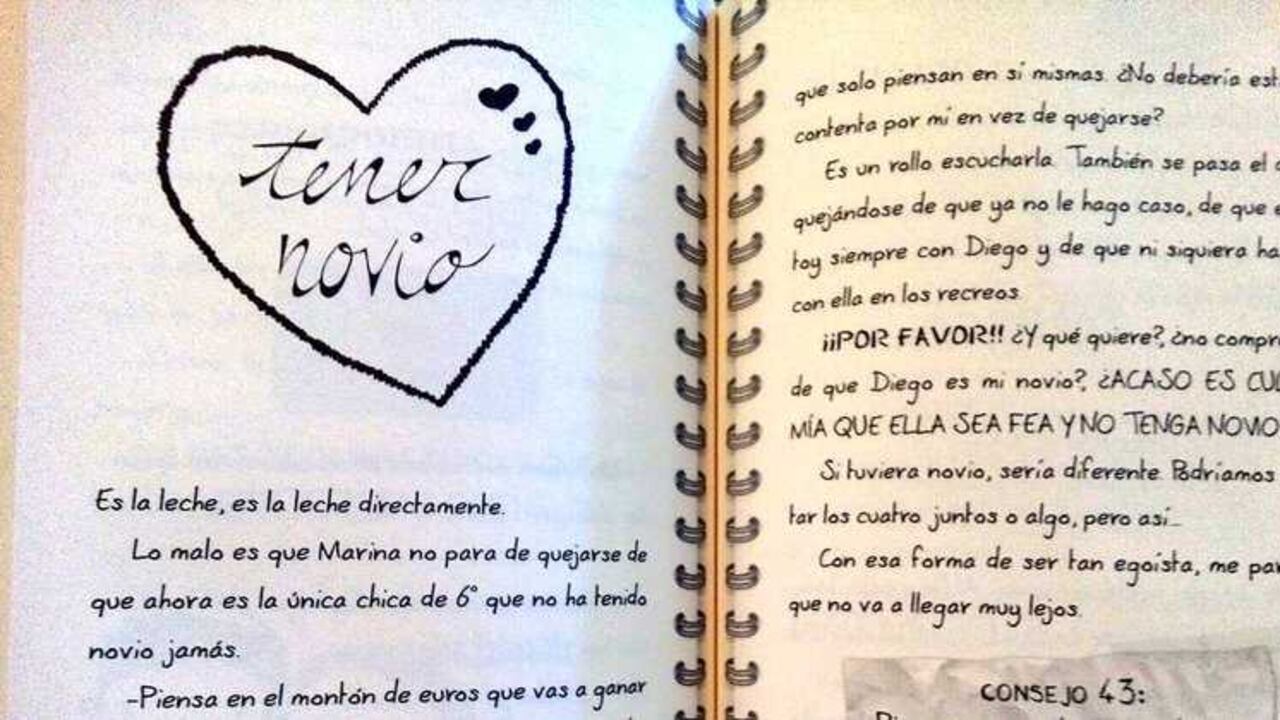 tener
novio
Es la leche, es la leche directamente.
Lo malo es que Marina no para de quejarse de
que ahora es la única chica de 6º que no ha tenido
novio jamás.
-Piensa en el montón de euros que vas a ganar
que solo piensan en sí mismas. ¿No debería est
contenta por mí en vez de quejarse?
Es un rollo escucharla. También se pasa el
quejándose de que ya no le hago caso, de que e
toy siempre con Diego y de que ni siquiera ha
con ella en los recreos.
¡¡POR FAVOR!! ¿Y qué quiere?, ¿no compr
de que Diego es mi novio?, ¿ACASO ES CUL
MÍA QUE ELLA SEA FEA Y NO TENGA NOVIO
Si tuviera novio, sería diferente. Podríamos
tar los cuatro juntos o algo, pero así...
Con esa forma de ser tan egoísta, me par
que no va a llegar muy lejos.
CONSEJO 43: